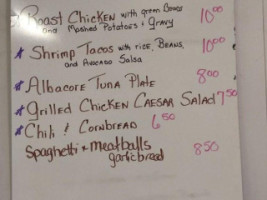 Roast Chicken with green Beans 10.00
and Mashed Potatoes & Gravy
* Shrimp Tacos with rice, Beans, 10.00
and Avocado Salsa
* Albacore Tuna Plate 8.00
* Grilled Chicken Caesar Salad 7.50
* Chili & Cornbread 6.50
Spaghetti & Meatballs 8.50
garlic bread